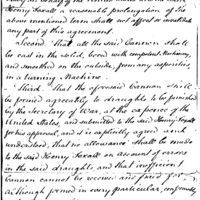 Henry Foxall a reasonable prolongation of the
above mentioned term shall not affect or invalidate
any part of this agreement.
Second. That all the said Cannon shall
be cast in the solid, bored with competent machinery,
and smoothed on the outside from any asperities
in a turning Machine.
Third. That the aforesaid Cannon shall
be formed agreeably to draughts to be furnished
by the Secretary of War, at the expence of the
United States, and submitted to the said Henry Foxall
for his approval, and it is explicitly agreed and
understood, that no allowance shall be made
to the said Henry Foxall on account of errors
in the said draughts, and that inefficient
Cannon cannot be received and paid for
although formed in every particular, conformably